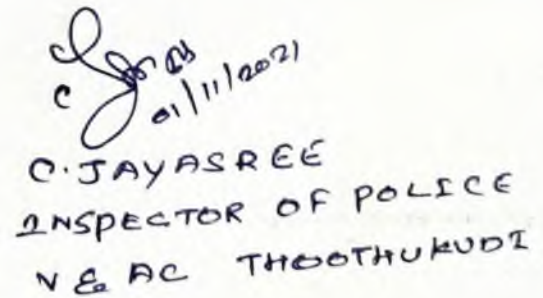 01/11/2021
C. JAYASREE
INSPECTOR OF POLICE
V & AC THOOTHUKUDI